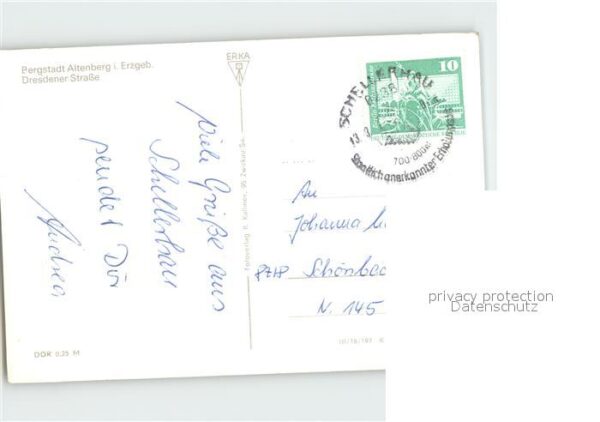 Bergstadt Altenberg i. Erzgeb.
Dresdener Straße
ERKA
Viele Grüße aus
Schellerhau
sendet Dir
Andrea
DDR 0,25 M
Fotoverlag R. Kallmer, 95 Zwickau-Sa.
10
SCHELLERHAU
8238
13.
700-800m
Staatlich anerkannter Erholungsort
An
Johanna
8718 Schönbac
N. 145
privacy protection
Datenschutz